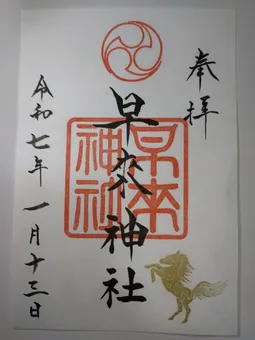 奉拝
早来神社
早来神社
令和七年一月十三日